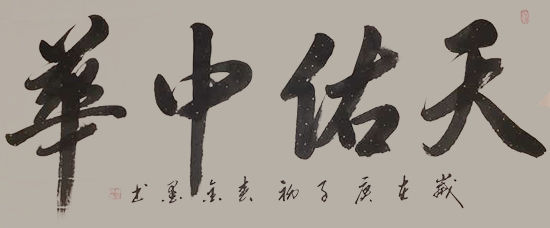 天佑中華
歲在庚子初春金墨書